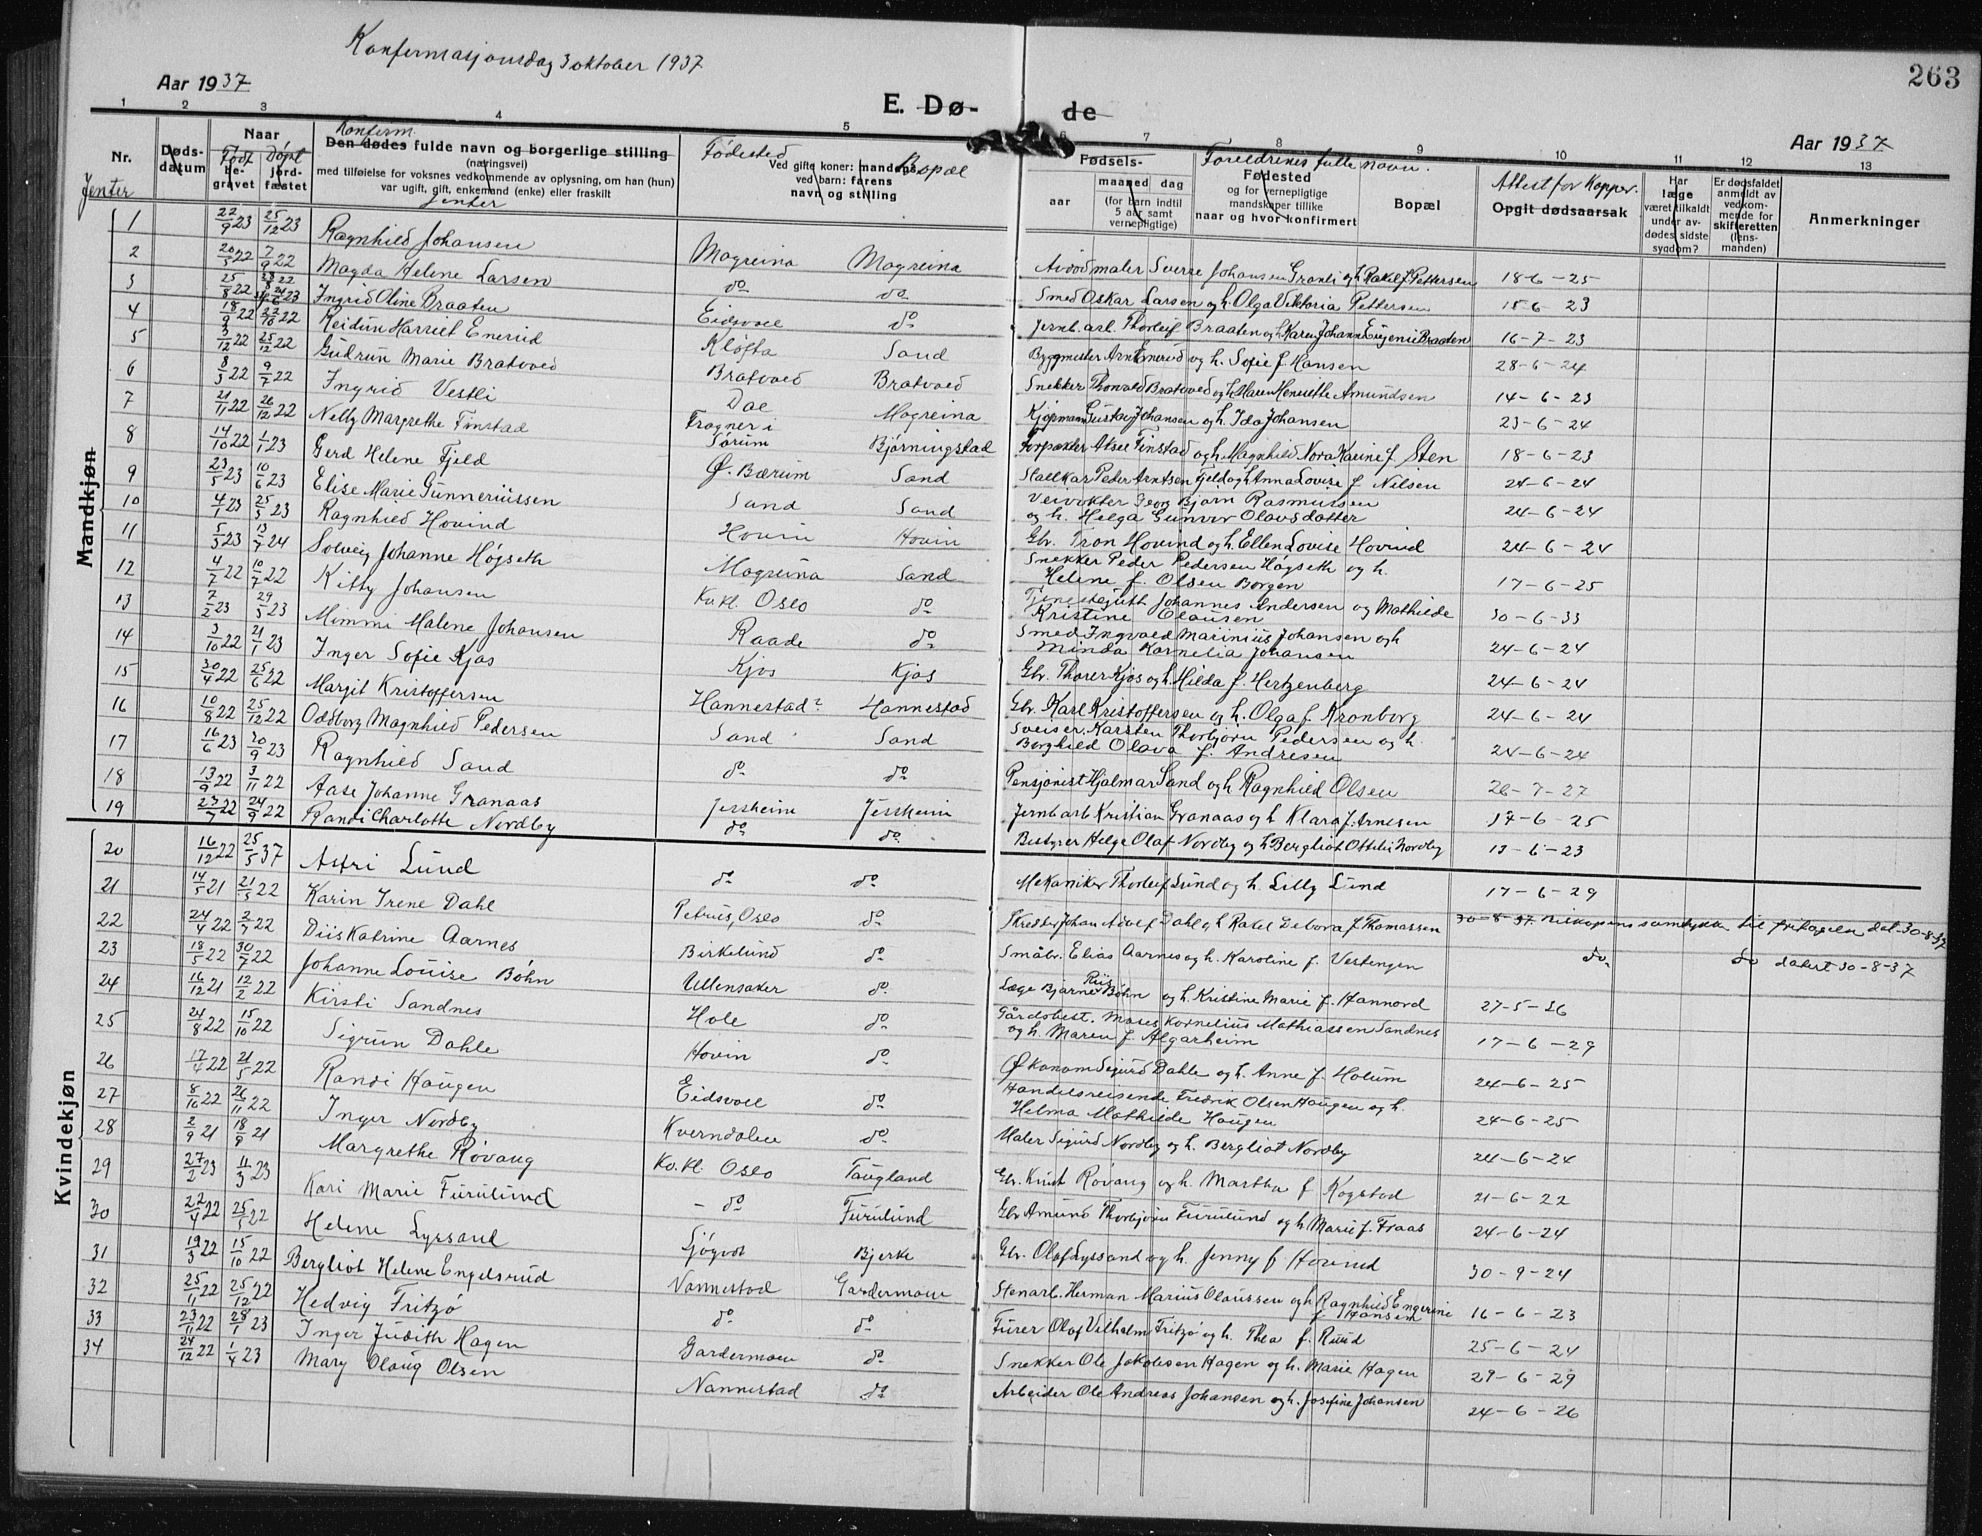 Konfermasjonsdag 3 oktober 1937
263
Aar 1937
E. Dø- de
Aar 1937
1 2 3 4 5 6 7 8 9 10 11 12 13
Nr.
Jenter
Døds-
datum
Naar
Født Døpt
be-
gravet
jord-
fæstet
Konferm.
Den dødes fulde navn og borgerlige stilling
(næringsvei)
med tilføielse for voksnes vedkommende av oplysning, om han (hun)
var ugift, gift, enkemand (enke) eller fraskilt
Jenter
Fødested Bopæl
Ved gifte koner: mandens,
ved barn: farens
navn og stilling
Fødsels-
aar
maaned dag
(for barn indtil
5 aar samt
vernepligtige)
Foreldrenes fulle navn.
Fødested
og for vernepligtige
mandskaper tillike
naar og hvor konfirmert
Bopæl
Attest for Kopper.
Opgit dødsaarsak
Har
læge
været tilkaldt
under av-
dødes sidste
sygdom?
Er dødsfaldet
anmeldt av
vedkom-
mende for
skifteretten
(lens-
manden)
Anmerkninger
Mandkjøn
1 22/9 23 25/12 23 Ragnhild Johansen Mogreina Mogreina Avdød maler Sverre Johansen Granli og h. Rakel f. Pettersen 18-6-25
2 20/5 22 7/9 22 Magda Helene Larsen do do Smed Oskar Larsen og h. Olga Viktoria Pettersen 15-6 23
3 25/8 22 24/6 23 Ingrid Oline Braaten Eidsvoll do Jernb.arb. Thorleif Braaten og h. Karen Johanne Eugenie Braaten 16-7-23
4 18/9 22 22/10 22 Reidun Harriet Enerud Kløfta Sand Byggmester Arnt Enerud og h. Sofie f. Hansen 28-6-24
5 3/12 22 25/12 22 Gudrun Marie Bratvold Bratvold Bratvold Snekker Thorvald Bratvold og h. Maren Henriette Amundsen 14-6-23
6 8/5 22 9/7 22 Ingrid Vestli Dal Mogreina Kjøpmann Gustav Johansen og h. Ida Johansen 23-6-24
7 21/11 22 26/12 22 Nelly Margrethe Finstad Frogner i Sørum Bjørningstad Forpakter Aksel Finstad og h. Magnhild Nora Karine f. Sten 18-6-23
8 14/10 22 1/1 23 Gerd Helene Fjeld Ø. Bærum Sand Stallkar Peder Arntsen Fjeld og h. Anna Lovise f. Nilsen 24-6-24
9 23/5 23 10/6 23 Elise Marie Gunneriussen Sand Sand Georg Bjarn Rasmussen
og h. Helga Gunver Olavsdatter 24-6-24
10 4/1 23 25/3 23 Ragnhild Hovind Hovin Hovin Gbr. Tron Hovind og h. Ellen Lovise Hovind 24-6-24
11 5/3 23 13/7 24 Solveig Johanne Høgseth Mogreina Sand Snekker Peder Pedersen Høgseth og h.
Helene f. Olsen Borgen 17-6-25
12 4/7 22 10/7 22 Kitty Johansen Kv.kl. Oslo do Tjenestgutt Johannes Andersen og Mathilde
Kristine Clausen 30-6-33
13 7/2 23 29/3 23 Mimmi Malene Johansen Raade do Smed Ingvald Marinius Johansen og h
Minda Kornelia Johansen 24-6-24
14 3/10 22 21/1 23 Inger Sofie Kjos Kjos Kjos Gbr. Thorer Kjos og h. Hilda f. Hertzenberg 24-6-24
15 30/4 22 25/6 22 Margit Kristoffersen Hannestad? Hannestad Gbr. Karl Kristoffersen og h. Olga f. Kronborg 24-6-24
16 10/8 22 25/12 22 Oddborg Magnhild Pedersen Sand Sand Sveiser Karsten Thorbjørn Pedersen og h.
Borghild Olava f. Andresen 24-6-24
17 16/6 23 30/9 23 Ragnhild Sand do do Pensjonist Hjalmar Sand og h Ragnhild Olsen 26-7-27
18 13/9 22 3/11 22 Aase Johanne Granaas Jessheim Jessheim Jernb.arb Kristian Granaas og h Klara f. Arnesen 17-6-25
19 23/7 22 24/9 22 Randi Charlotte Nordby do do Bestyrer Helge Olaf Nordby og h Bergliot Ottilie Nordby 13-6-23
Kvindekjøn
20 16/12 22 25/5 37 Astri Lund do do Mekaniker Thorleif Lund og h. Lilly Lund 17-6-29
21 14/5 21 21/5 22 Karin Irene Dahl Petrus, Oslo do Skredder Johan Adolf Dahl og h Rakel Debora f Thomassen 30-8-37 Biskopens samtykke til fritagelse dat. 30-8-37
22 24/4 22 2/7 22 Diis Katrine Aarnes Birkelund do Småbr. Elias Aarnes og h. Karoline f. Vestengen do do datert 30-8-37
23 18/5 22 30/7 22 Johanne Louise Bøhn Ullensaker do Læge Bjarne Riis Bøhn og h. Kristine Marie f. Hannord 27-5-26
24 16/12 21 12/2 22 Kirsti Sandnes Hole do Gårdsbest. Moses Kornelius Mathiassen Sandnes
og h. Maren f. Algarheim 17-6-29
25 24/8 22 15/10 22 Sigrun Dahle Hovin do Økonom Sigurd Dahle og h. Anne f. Holum 24-6-25
26 17/4 22 21/5 22 Randi Haugen Eidsvoll do Handelsreisende Fredrik Olsen Haugen og h.
Helma Mathilde Haugen 24-6-25
27 8/10 22 26/11 22 Inger Nordby Kverndalen do Maler Sigurd Nordby og h. Bergliot Nordby 24-6-24
28 2/9 21 18/9 21 Margrethe Røvang Kv.kl. Oslo Taugland Gbr. Knut Røvang og h. Martha f Kogstad 21-6-22
29 27/2 23 11/3 23 Kari Marie Furulund - do Furulund Gbr Amund Thorbjørn Furulund og h Marie f. Fraas 24-6-24
30 22/4 22 25/5 22 Helene Lyssand Sjøgvot Bjerke Gbr. Olaf Lyssand og h. Jenny f Hovind 30-9-24
31 19/3 22 15/10 22 Bergliot Helene Engelsrud Nannestad Gardermoen Stenarb. Herman Marius Olaussen og h Ragnhild Engerine
f Hansen 16-6-23
32 25/11 22 25/12 22 Hedvig Fritzø do do Furer Olaf Vilhelm Fritzø og h. Thea f. Ruud 25-6-24
33 23/11 22 28/1 23 Inger Judith Hagen Gardermoen do Snekker Ole Jakobsen Hagen og h. Marie Hagen 29-6-29
34 24/12 22 1/4 23 Mary Olaug Olsen Nannestad do Arbeider Ole Andreas Johansen og h. Josefine Johansen 24-6-26